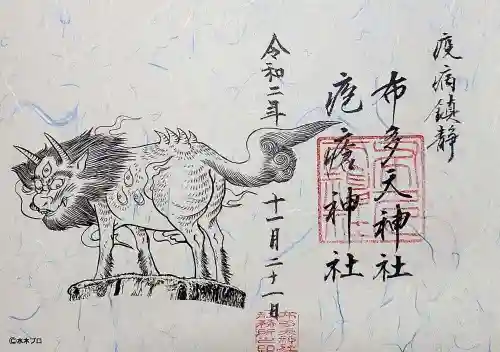 疫病鎮静
布多天神社
疱瘡神社
令和二年
十一月二十一日
©水木プロ